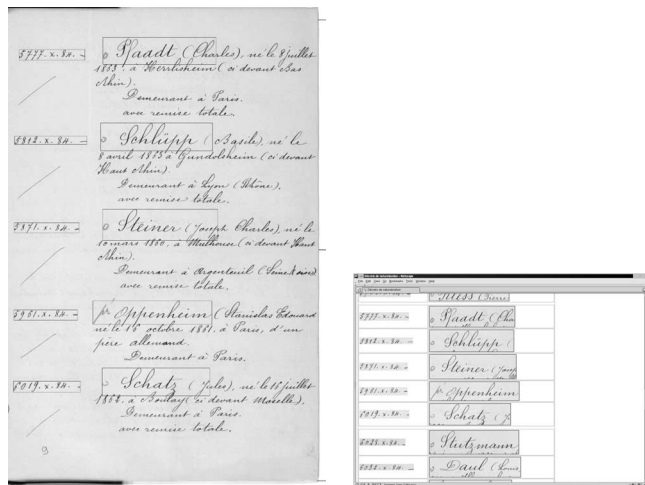 5777. x. 84. -
o Pfaadt (Charles), né le 8 juillet
1853, à Herrlisheim (ci devant Bas
Rhin).
Demeurant à Paris.
avec remise totale.
5812. x. 84. -
o Schlüpp (Basile), né le
8 avril 1853 à Gundolsheim (ci devant
Haut Rhin).
Demeurant à Lyon (Rhône).
avec remise totale.
5871. x. 84. -
o Steiner (Joseph Charles), né le
10 mars 1860, à Mulhouse (ci devant Haut
Rhin).
Demeurant à Argenteuil (Seine & oise)
avec remise totale.
5961. x. 84. -
Oppenheim (Stanislas Edouard
né le 16 octobre 1861, à Paris, d'un
père allemand.
Demeurant à Paris.
6019. x. 84. -
o Schatz (Jules), né le 15 juillet
1852, à Boulay (ci devant Moselle).
Demeurant à Paris.
avec remise totale.
9
5777. x. 84. -
o Pfaadt (Cha
5812. x. 84. -
o Schlüpp (
5871. x. 84. -
o Steiner (Josep
5961. x. 84. -
Oppenheim
6019. x. 84. -
o Schatz (J
6028. x. 84. -
o Stutzmann
6032. x. 84. -
o Daul (Louis